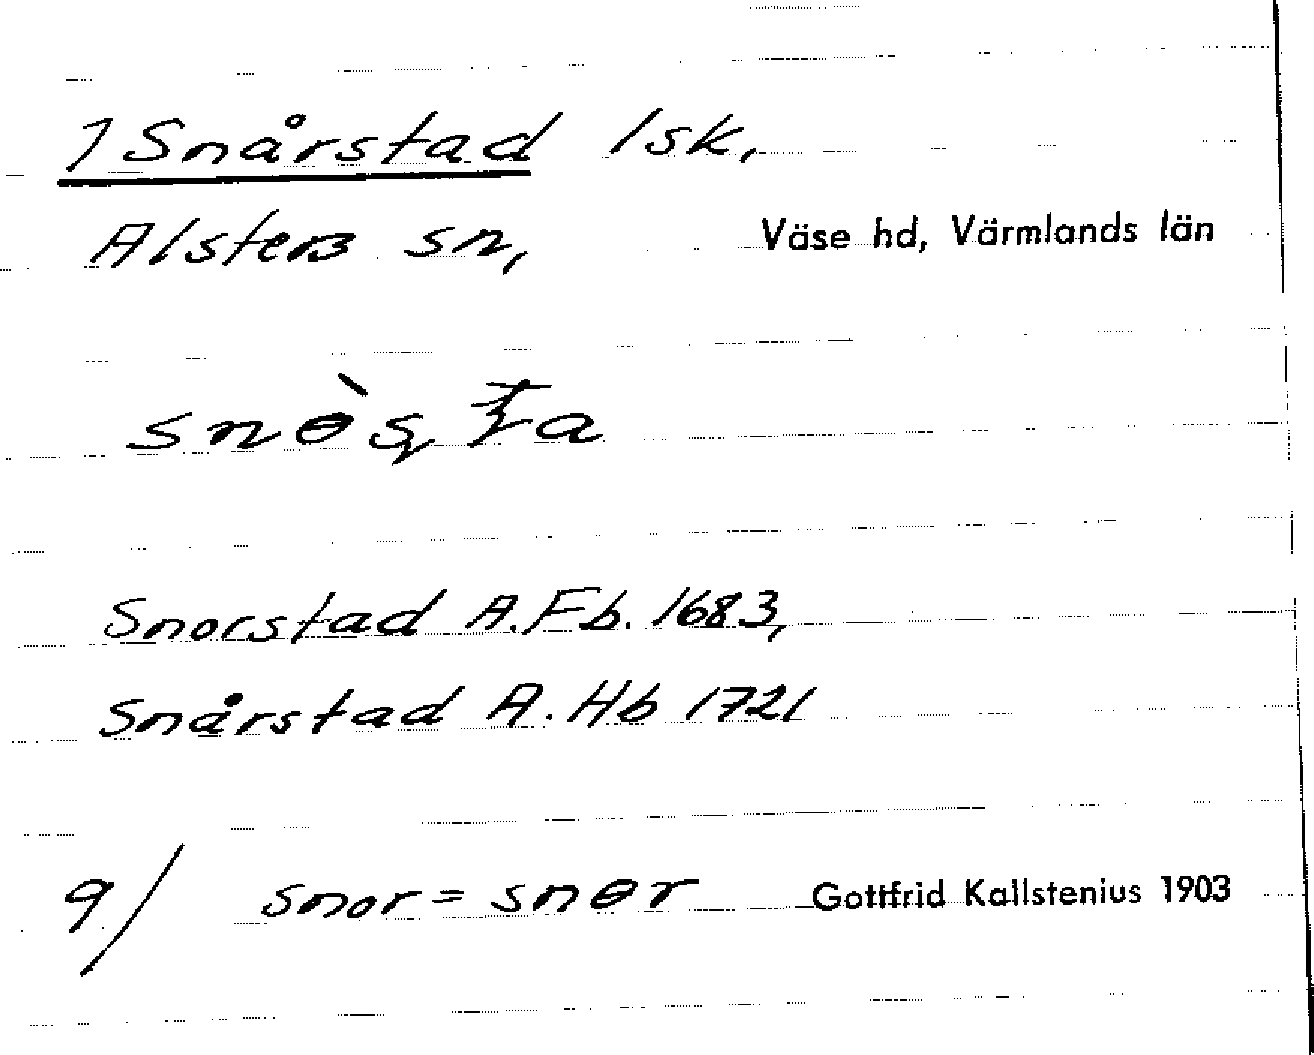 1 Snårstad 1sk,
Alsters sn, Väse hd, Värmlands län
snɵ̀ʂʈa
Snorstad A.Fb. 1683,
Snårstad A.Hb 1721
9/ snor = snɵr Gottfrid Kallstenius 1903